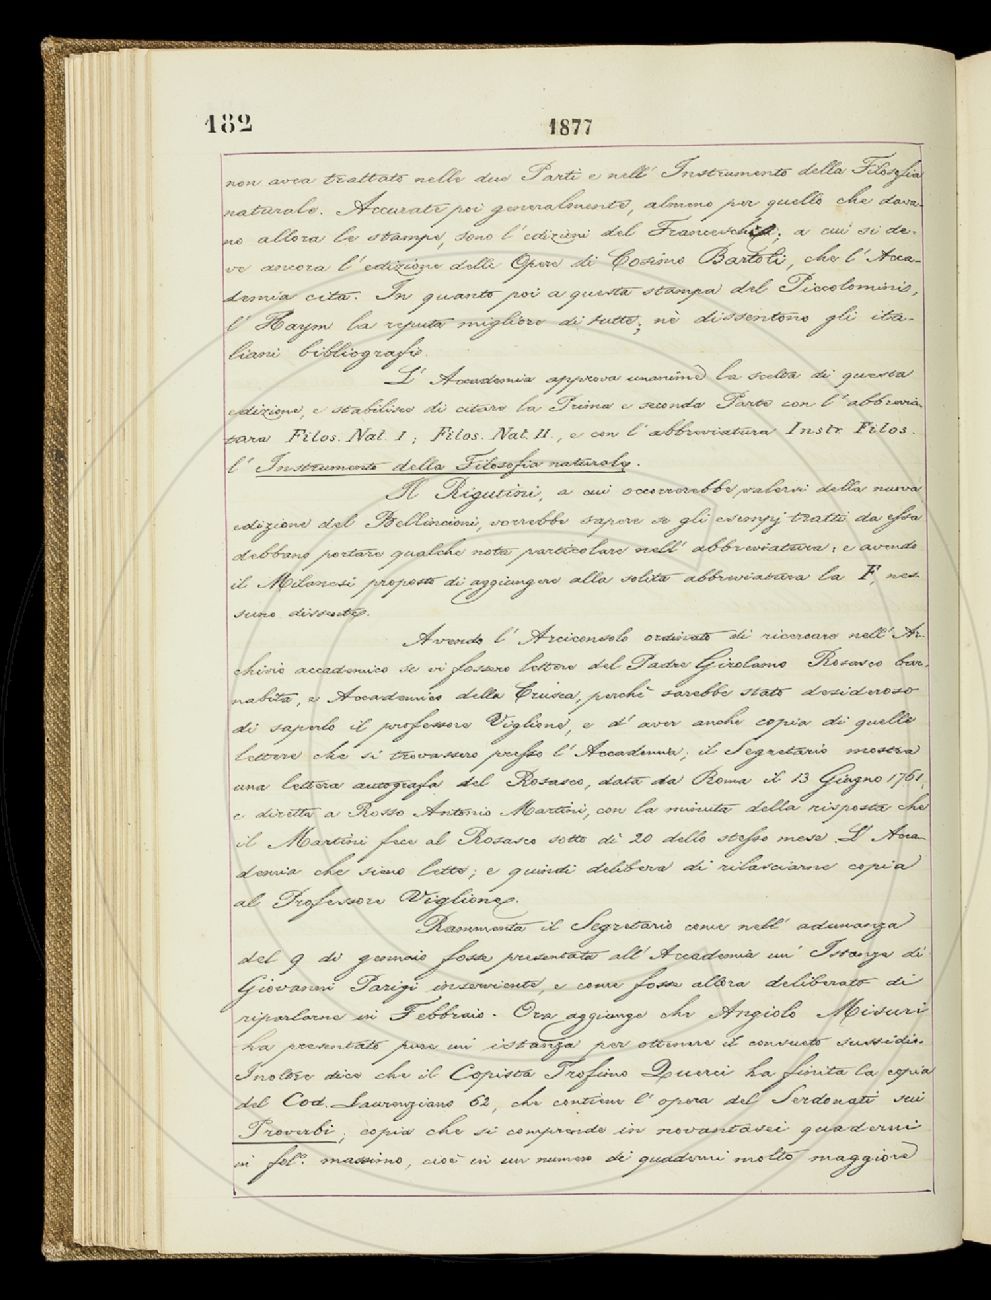 182
1877
non avea trattato nelle due Parti e nell' Instrumento della Filosofia
naturale. Accurate poi generalmente, almeno per quello che dava-
no allora le stampe, sono l'edizioni del Franceschi; a cui si de-
ve ancora l'edizione delle Opere di Cosimo Bartoli, che l'Acca-
demia cita. In quanto poi a questa stampa del Piccolomini,
l'Haym la reputa migliore di tutte; nè dissentono gli ita-
liani bibliografi.
L'Accademia approva unanime la scelta di questa
edizione, e stabilisce di citare la Prima e seconda Parte con l'abbrevia-
tura Filos. Nat. I; Filos. Nat. II., e con l'abbreviatura Instr. Filos.
l'Instrumento della Filosofia naturale.
Il Rigutini, a cui occorrerebbe valersi della nuova
edizione del Bellincioni, vorrebbe sapere se gli esempj tratti da essa
debbano portare qualche nota particolare nell'abbreviatura; e avendo
il Milanesi proposto di aggiungere alla solita abbreviatura la F, nes-
suno dissente.
Avendo l'Arciconsolo ordinato di ricercare nell'Ar-
chivio accademico se vi fossero lettere del Padre Girolamo Rosasco bar-
nabita, e Accademico della Crusca, perchè sarebbe stato desideroso
di saperlo il professore Viglione, e d'aver anche copia di quelle
lettere che si trovassero presso l'Accademia; il Segretario mostra
una lettera autografa del Rosasco, data da Roma il 13 Giugno 1761,
e diretta a Rosso Antonio Martini, con la minuta della risposta che
il Martini fece al Rosasco sotto dì 20 dello stesso mese. L'Acca-
demia che sieno lette; e quindi delibera di rilasciarne copia
al Professore Viglione.
Rammenta il Segretario come nell'adunanza
del 9 di gennaio fosse presentata all'Accademia un'Istanza di
Giovanni Parigi inserviente, e come fosse allora deliberato di
riparlarne in Febbraio. Ora aggiunge che Angiolo Misuri
ha presentato pure un'istanza per ottenere il consueto sussidio.
Inoltre dice che il Copista Trofimo Querci ha finita la copia
del Cod. Laurenziano 62, che contiene l'opera del Serdonati sui
Proverbi; copia che si comprende in novantasei quaderni
in fol.° massimo, cioè in un numero di quaderni molto maggiore